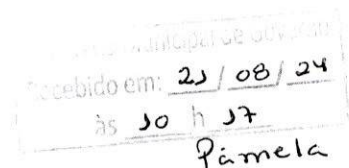 Municipal de Governo
Recebido em: 21 / 08 / 24
às 10 h 17
Pâmela